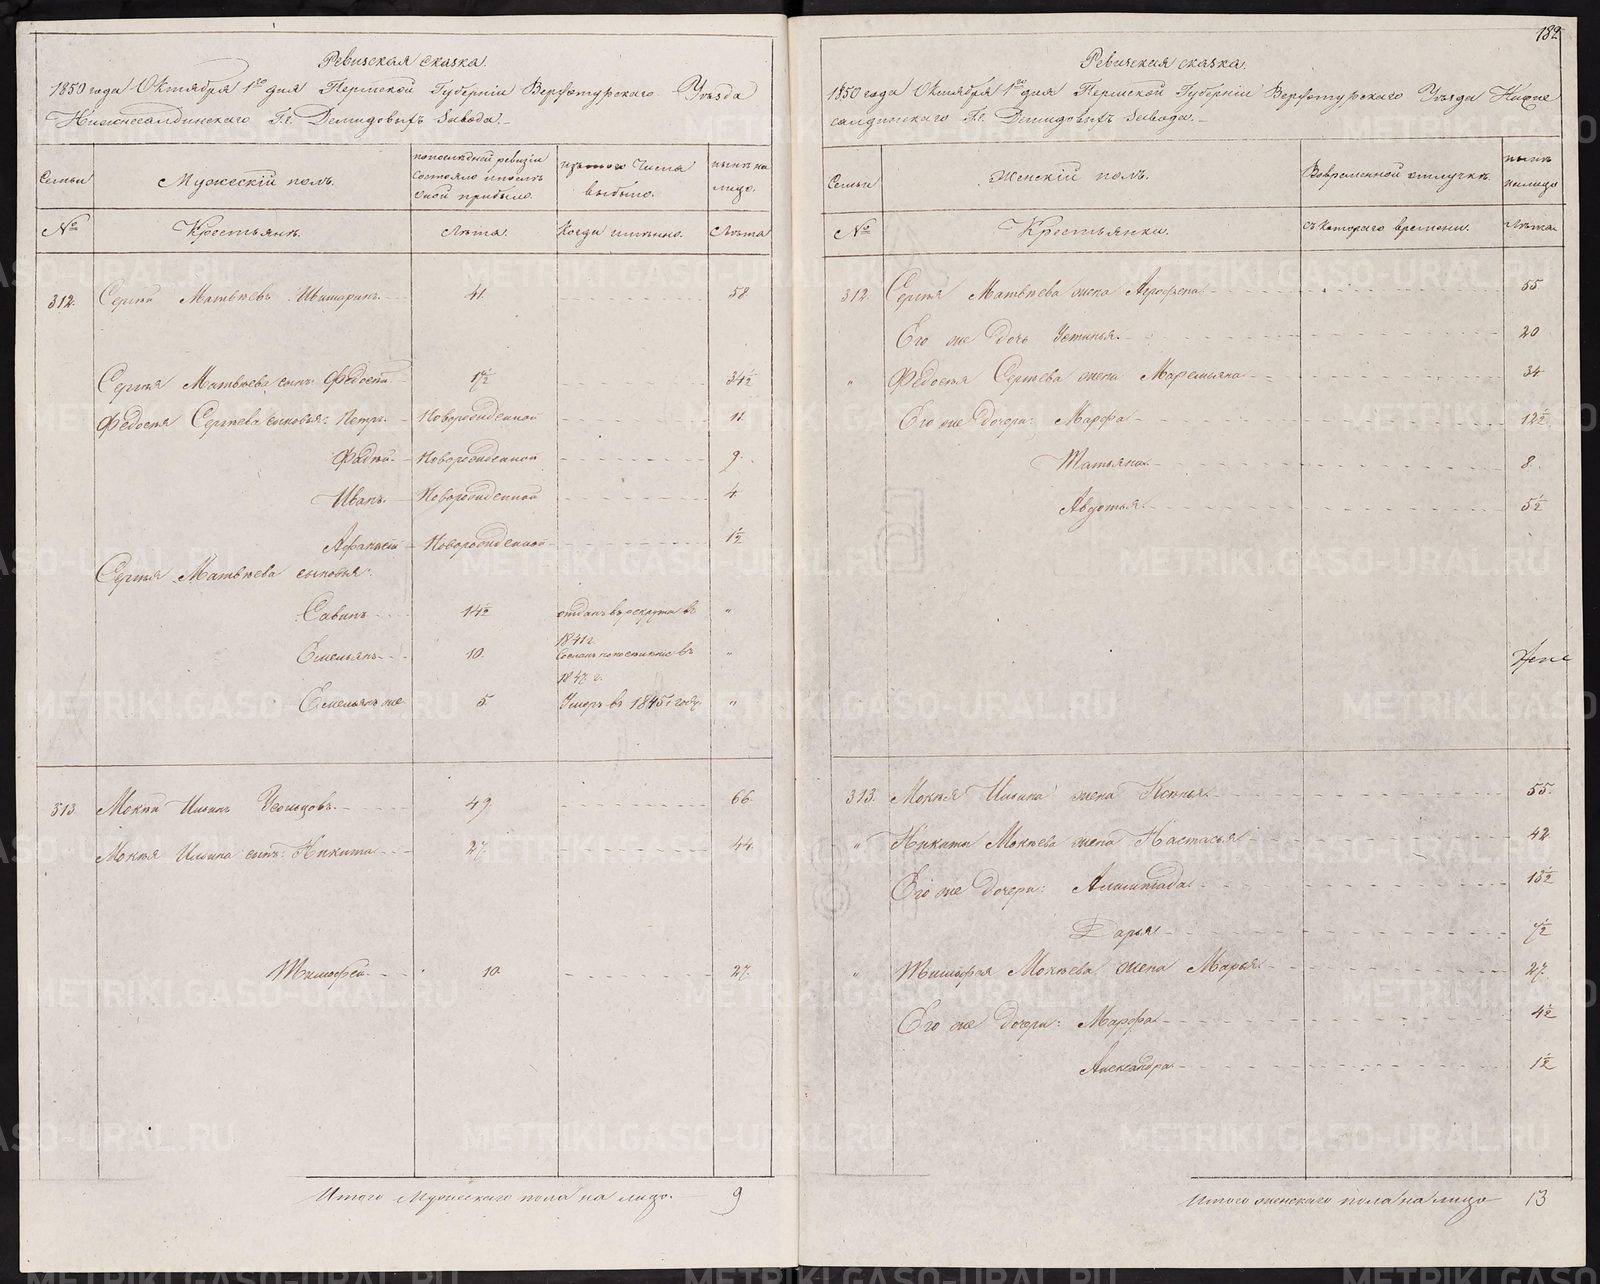 Ревизская сказка.
1850 года Октября 1го дня Пермской Губерніи Верхотурскаго Уѣзда
Нижнесалдинскаго Г.г. Демидовыхъ Завода.
Семьи
Мужескій полъ.
по последней ревизіи состояло и послѣ оной прибыло.
изъ того числа выбыло.
нынѣ на лицо.
№
Крестьянъ.
Лѣта.
Когда именно.
Лѣта
312. Сергѣй Матвѣевъ 41. 58
Сергѣя Матвѣева сынъ: Федосей 17½ 34½
Федосея Сергѣева сыновья: Петръ. Новорожденной 11.
Фадѣй. Новорожденной 9.
Иванъ. Новорожденной 4
Афанасій Новорожденной 1½
Сергѣя Матвѣева сыновья:
Савинъ 14½ отданъ въ рекруты въ 1841 г. "
Емельянъ 10. въ 184 г. "
Емельянъ же 5 Умеръ въ 1845 году. "
313. Мокѣй Ильинъ 49 66.
Мокѣя Ильина сынъ: Никита 27. 44.
Тимофей. 10. 27.
Итого Мужескаго пола на лицо. 9
182
Ревизская сказка.
1850 года Октября 1го дня Пермской Губерніи Верхотурскаго Уѣзда Нижне
салдинскаго Г.г. Демидовыхъ Завода.
Семьи
Женскій полъ.
Вовременной отлучкѣ.
нынѣ налицо
№
Крестьянки.
съ котораго времени.
Лѣта.
312. Сергѣя Матвѣева жена Агрофена 55
Его же дочь Устинья. 20
" Федосея Сергѣева жена Маремьяна 34
Его же дочери: Марфа 12½
Татьяна. 8.
Авдотья. 5½
313. Мокѣя Ильина жена Ксенья. 55.
" Никиты Мокѣева жена Настасья 42
Его же дочери: Алимпіада. 13½
Дарья
" Тимофея Мокѣева жена Марья 27.
Его же дочери: Марфа 4½
Александра. 1½
Итого женскаго пола на лицо 13
METRIKI.GASO-URAL.RU